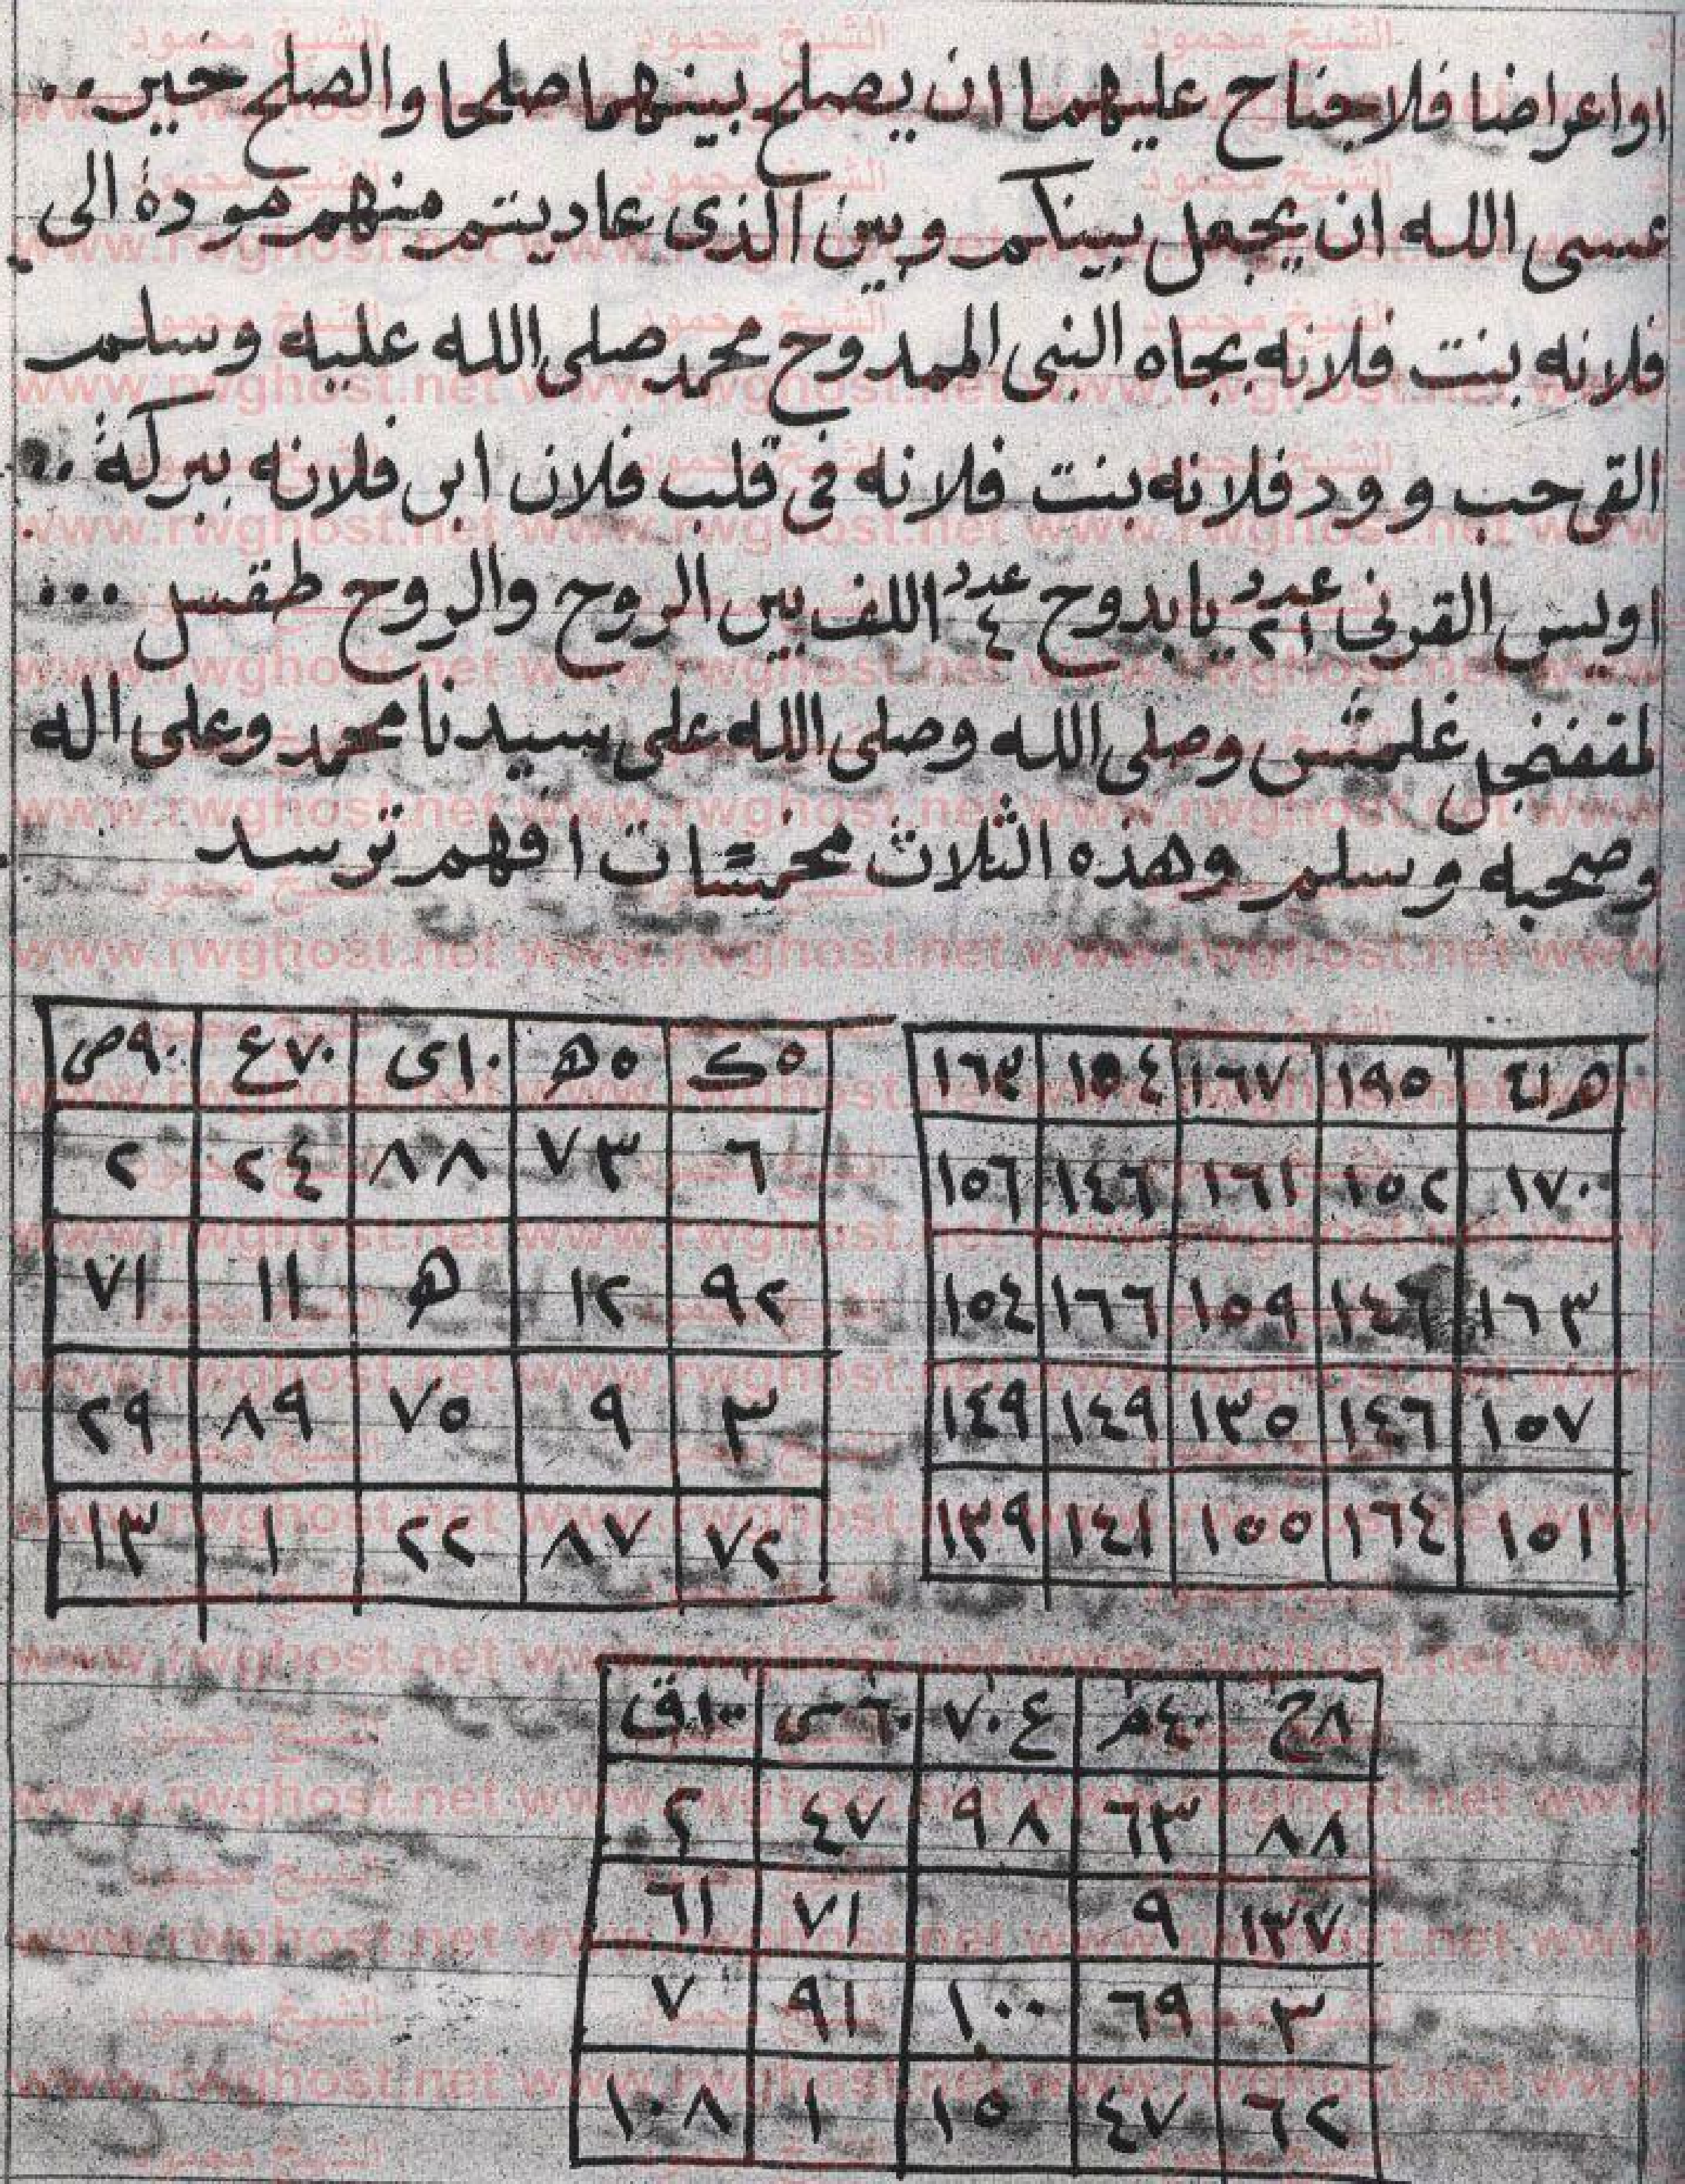 او اعراضا فلا جناح عليهما ان يصلح بينهما صلحا والصلح خير..
عسى الله ان يجعل بينكم وبين الذى عاديتم منهم مودة الى
فلانه بنت فلانه بجاه النبى الممدوح محمد صلى الله عليه وسلم
القى حب وود فلانه بنت فلانه فى قلب فلان ابن فلانه ببركة..
اويس القرنى عدد ٢١ يا بدوح عدد ٤ اللف بين الروح والروح طقسل ...
لقفنجل غلمشى وصلى الله وصلى الله على سيدنا محمد وعلى اله
وصحبه وسلم وهذه الثلاث مخمسات افهم ترسد
١٦٤ ١٥٤ ١٦٧ ١٩٥
١٥٦ ١٤٦ ١٦١ ١٥٢ ١٧٠
١٥٤ ١٦٦ ١٥٩ ١٤٦ ١٦٣
١٤٩ ١٤٩ ١٣٥ ١٤٦ ١٥٧
١٣٩ ١٤١ ١٥٥ ١٦٤ ١٥١
٩٠ص ٧٠ع ١٠ى ٥ھ ٥ك
٢ ٢٤ ٨٨ ٧٣ ٦
٧١ ١١ ھ ١٢ ٩٢
٢٩ ٨٩ ٧٥ ٩ ٣
١٣ ١ ٢٢ ٨٧ ٧٢
١٠٠ق ٦٠س ٧٠ع ٤٠م ٨ح
٢ ٤٧ ٩٨ ٦٣ ٨٨
٦١ ٧١ ٩ ١٣٧
٧ ٩١ ١٠٠ ٦٩ ٣
١٠٨ ١ ١٥ ٤٧ ٦٢
الشيخ محمود
www.rwghost.net